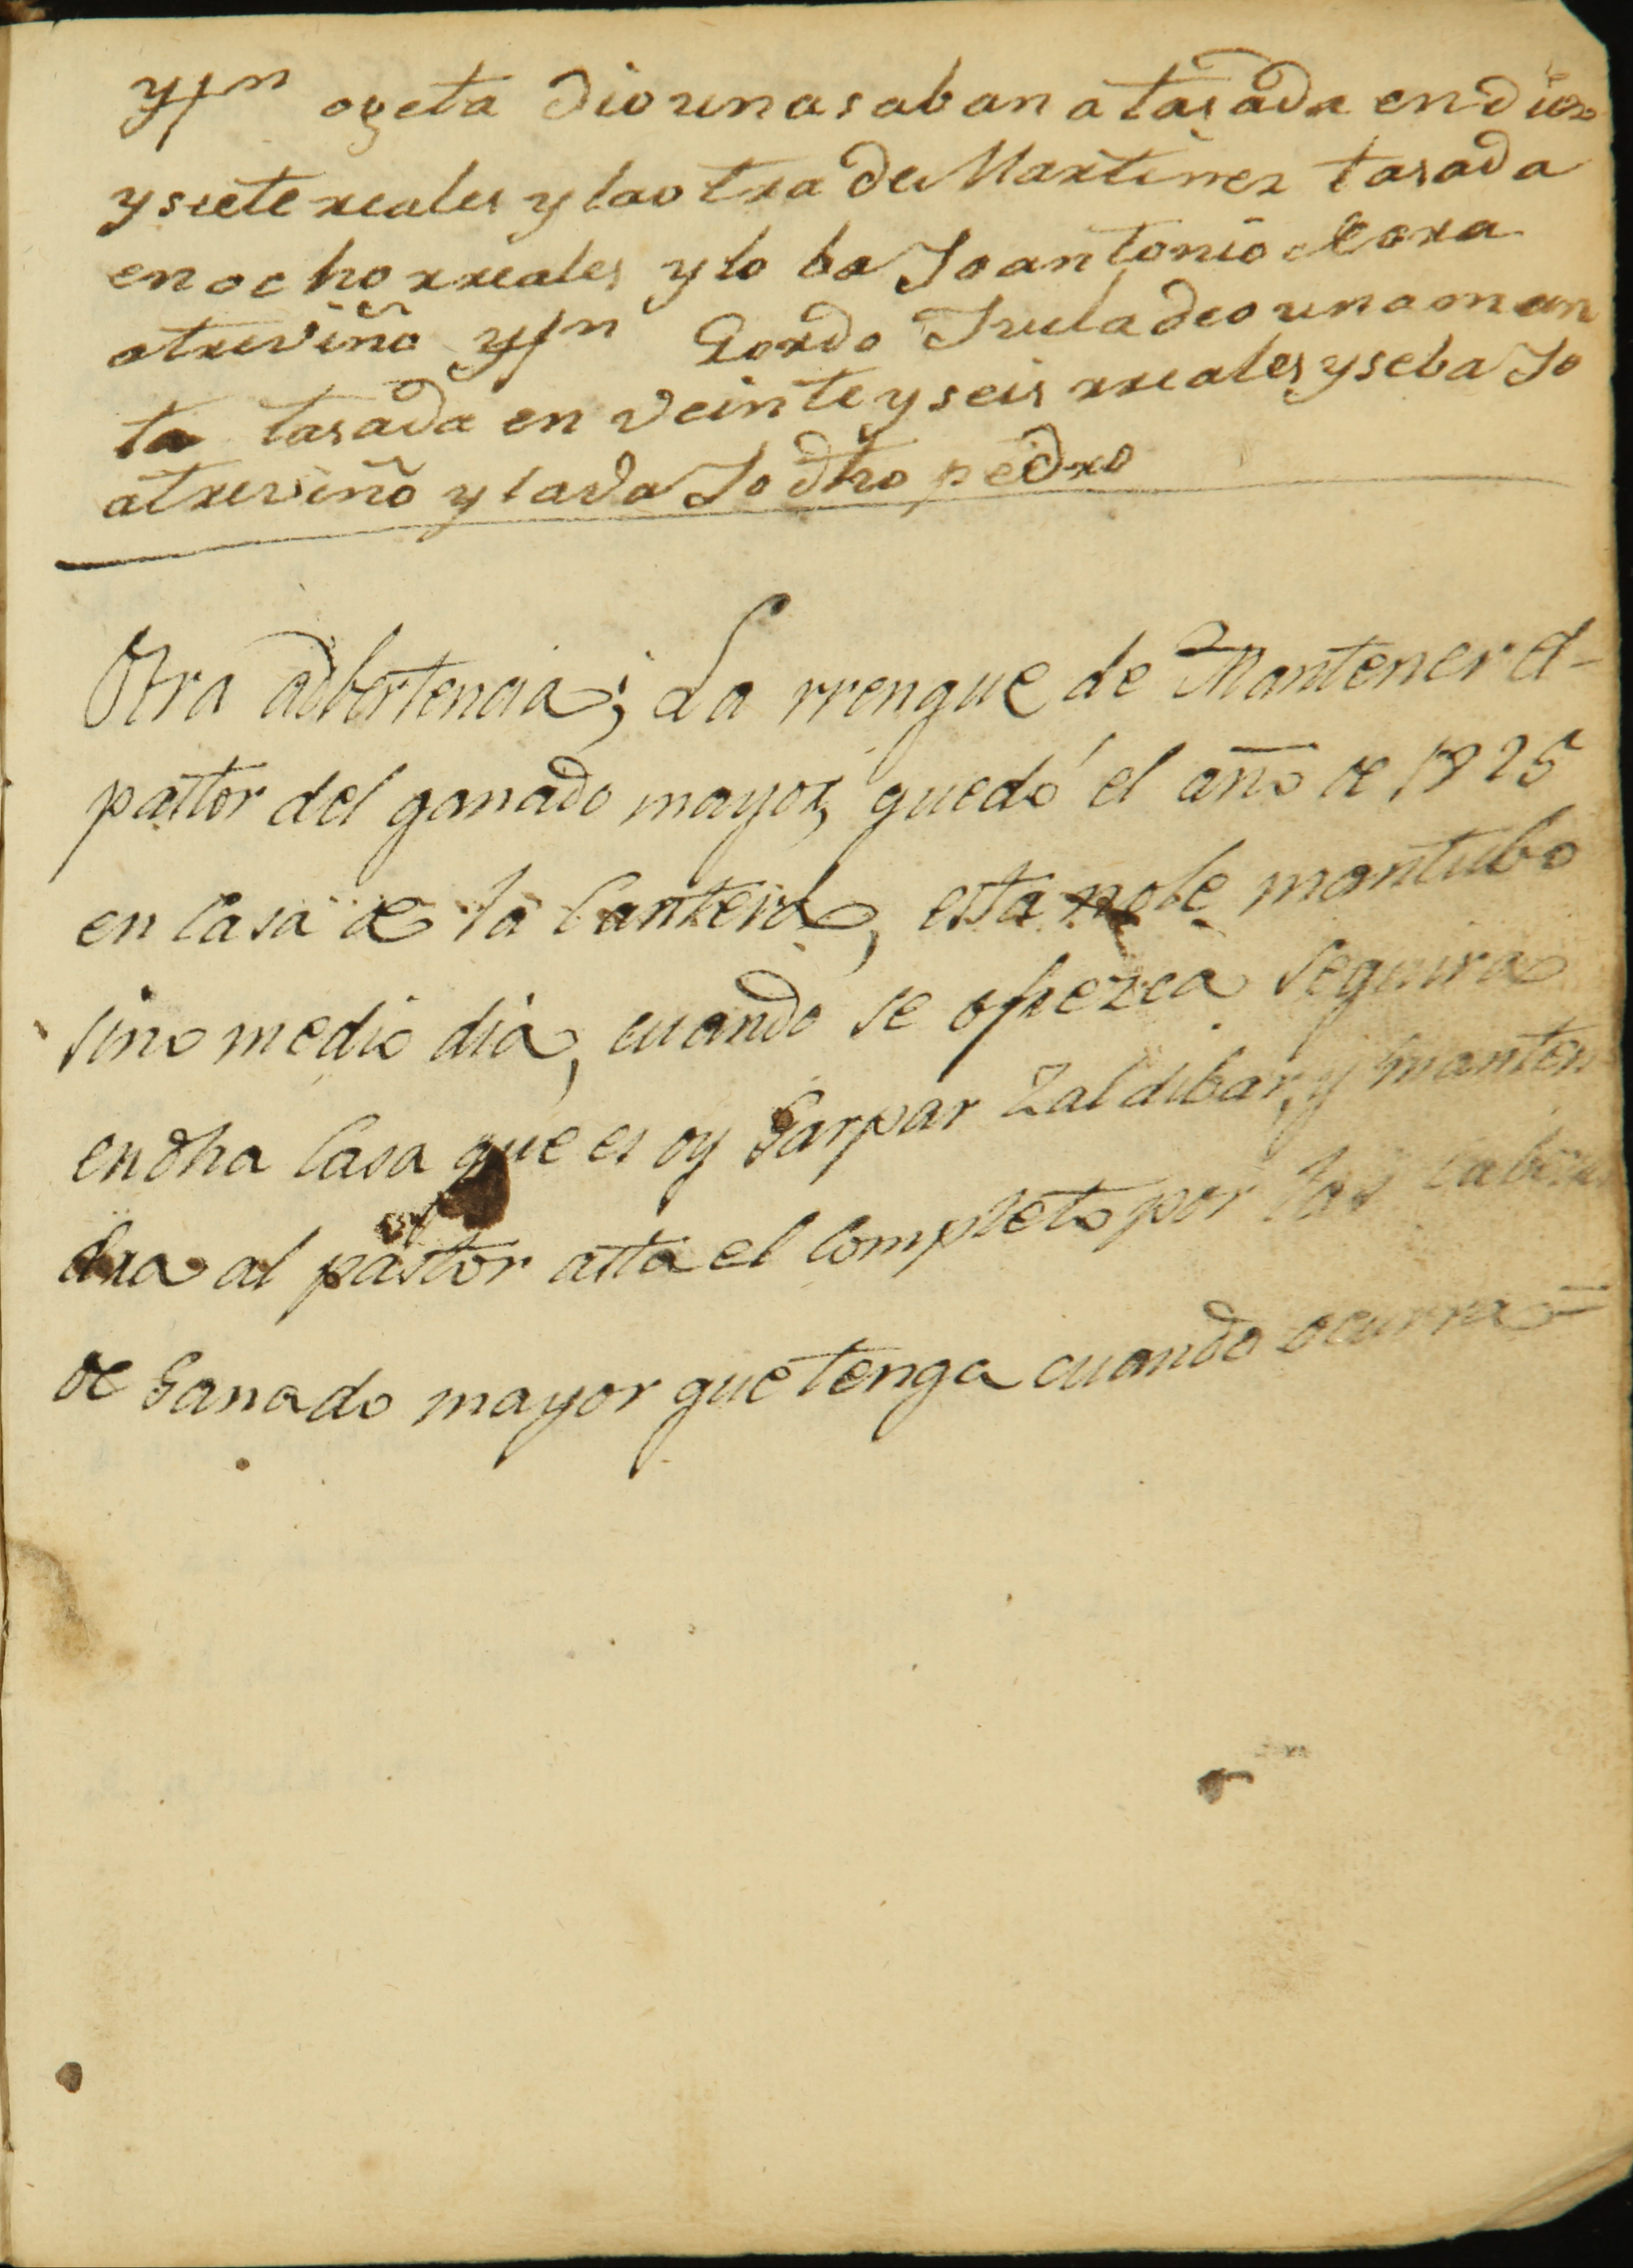 y Jn ozeta dio una sabana tasada en diez
y siete reales y la otra de Martinez tasada
en ocho rreales y lo ba Jo antonio
a treviño y Jn Gordo Juela dio una man
ta tasada en veinte y seis rreales y se ba Jo
a treviño y la va Jo dho pedro
Otra adbertencia; La rrengue de Mantener el
pastor del ganado mayor, quedó el año de 1825
en Casa de la Cantera, esta no le mantubo
sino medio dia, cuando se ofrezca seguira
en dha Casa que es oy Gaspar Zaldibar, y manten
dra al pastor asta el completo por las cabezas
de Ganado mayor que tenga cuando ocurra